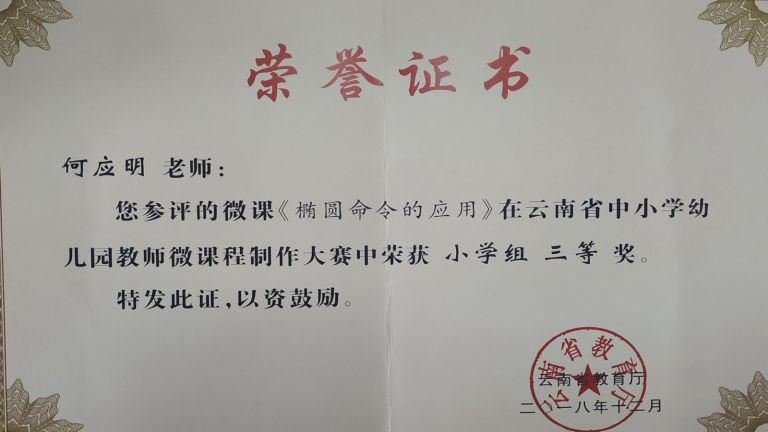 荣誉证书
何应明 老师：
您参评的微课《椭圆命令的应用》在云南省中小学幼
儿园教师微课程制作大赛中荣获 小学组 三等 奖。
特发此证，以资鼓励。
云南省教育厅
云南省教育厅
二〇一八年十二月